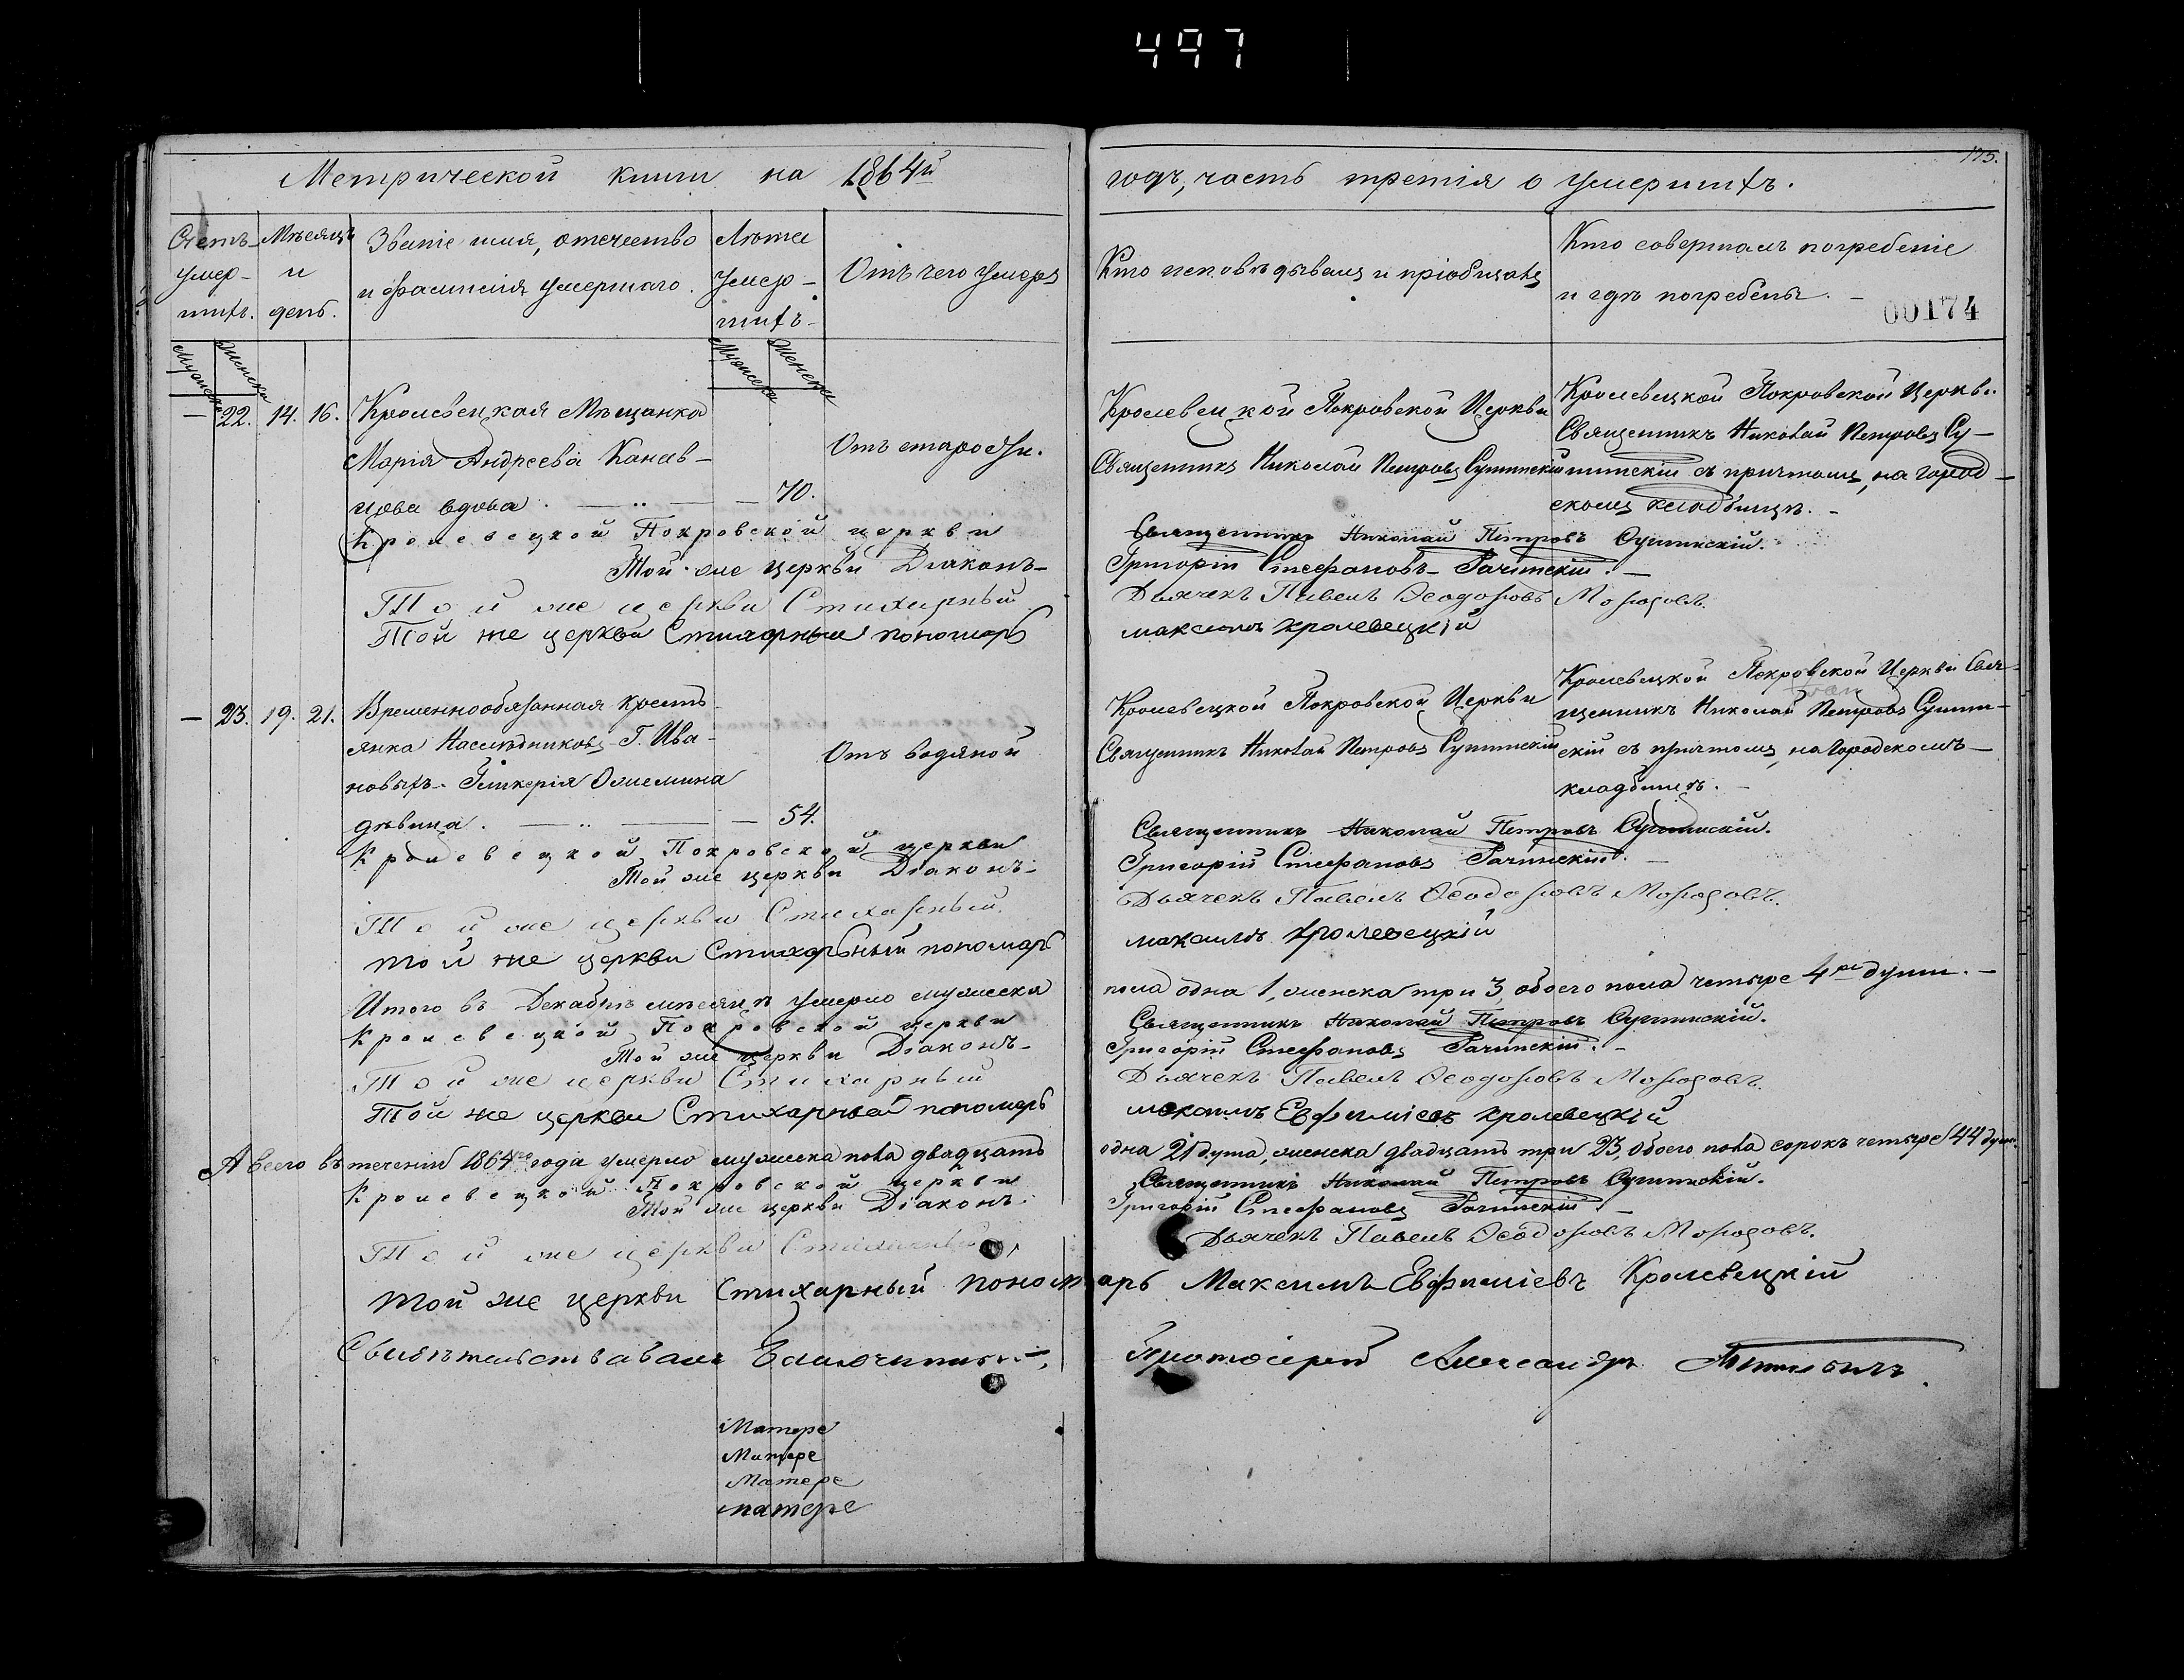 497
175.
Метрической книги на 1864й
годъ, часть третія о умершихъ.
Счетъ умер-шихъ.
Мѣсяцъ и день.
Званіе имя, отечество и фамилія умершаго.
Лѣта умер-шихъ
Отъ чего умеръ
Кто исповѣдывалъ и пріобщалъ
Кто совершалъ погребеніе и гдѣ погребены.
00174
Мужеска
Женска
Мужеска
Женска
— 22. 14. 16. Кролевецкая Мѣщанка
Марія Андреева Канив-
цова вдова. — 70.
Отъ старости.
Кролевецкой Покровской Церкви
Священникъ Николай Петровъ
Кролевецкой Покровской Церкви
Священникъ Николай Петровъ Су-
шинскій съ причтомъ, на город-
скомъ кладбищѣ.
Кролевецкой Покровской церкви Священникъ Николай Петровъ
Той же церкви Діаконъ Григорій Стефановъ
Той же церкви Стихарный Дьячекъ Павелъ Ѳеодоровъ
Той же церкви Стихарный пономарь максимъ кролевецкій
— 23. 19. 21. Временнообязанная крестъ-
янка Наслѣдниковъ Г. Ива-
новыхъ. Гликерія
дѣвица. — 54.
Отъ водяной
Кролевецкой Покровской Церкви
Священникъ Николай Петровъ
Кролевецкой Покровской Церкви Свя-
щенникъ Николай Петровъ Сушин-
скій съ причтомъ, на Городскомъ
кладбищѣ.
Кролевецкой Покровской церкви Священникъ Николай Петровъ
Той же церкви Діаконъ Григорій Стефановъ
Той же церкви Стихарный Дьячекъ Павелъ Ѳеодоровъ
той же церкви Стихарный пономарь максимъ кролевецкій
Итого въ Декабрѣ мѣсяцѣ умерло мужеска пола одна 1, женска три 3, обоего пола четыре 4ре души.
Кролевецкой Покровской церкви Священникъ Николай Петровъ
Той же церкви Діаконъ Григорій Стефановъ
Той же церкви Стихарный Дьячекъ Павелъ Ѳеодоровъ
Той же церкви Стихарный пономарь максимъ Евфиміевъ кролевецкій
А всего въ теченіи 1864го года умерло мужеска пола двадцать одна 21 душа, женска двадцать три 23, обоего пола сорокъ четыре 44 души.
Кролевецкой Покровской церкви Священникъ Николай Петровъ
Той же церкви Діаконъ Григорій Стефановъ
Той же церкви Стихарный Дьячекъ Павелъ Ѳеодоровъ
той же церкви Стихарный пономарь Максимъ Евфиміевъ Кролевецкій
Свидѣтельствовалъ Благочинный, Протоіерей Александръ
Матере
Матере
Матере
матере